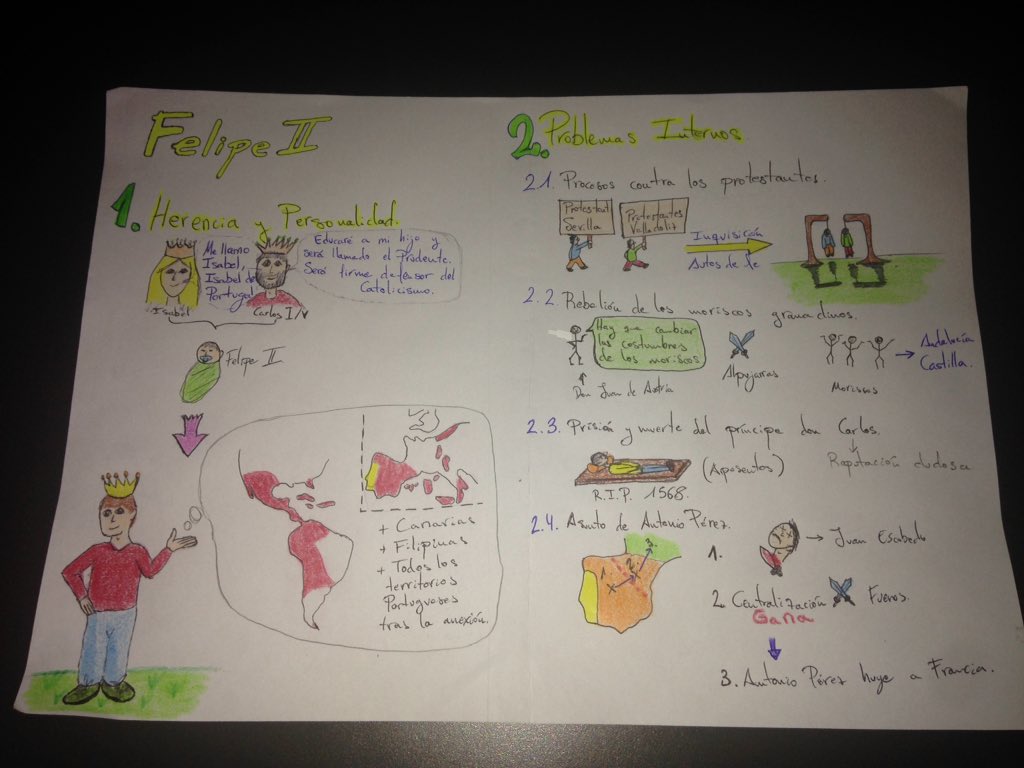 Felipe II
1. Herencia y Personalidad.
Me llamo
Isabel,
Isabel de
Portugal
Educaré a mi hijo y
será llamado el Prudente.
Será firme defensor del
Catolicismo.
Isabel
Carlos I/V
Felipe II
+ Canarias
+ Filipinas
+ Todos los
territorios
Portugueses
tras la anexión.
2. Problemas Internos
2.1. Procesos contra los protestantes.
Protestant
Sevilla
Protestantes
Valladolit
Inquisición
Autos de fe
2.2. Rebelión de los moriscos granadinos.
Hay que cambiar
las costumbres
de los moriscos
Don Juan de Austria
Alpujarras
Moriscos
Andalucía
Castilla.
2.3. Prisión y muerte del príncipe don Carlos.
(Aposentos)
Reputación dudosa
R.I.P. 1568.
2.4. Asunto de Antonio Pérez.
1
x
2
3
1.
Juan Escobedo
2. Centralización
Fueros.
Gana
3. Antonio Pérez huye a Francia.